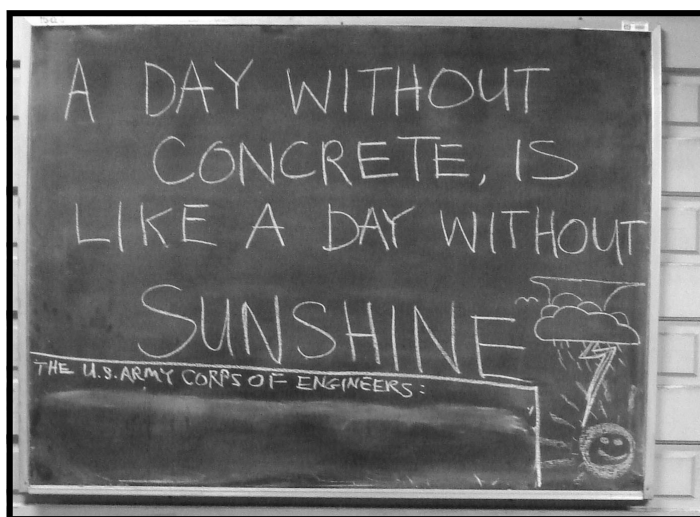 A DAY WITHOUT
CONCRETE, IS
LIKE A DAY WITHOUT
SUNSHINE
THE U.S. ARMY CORPS OF ENGINEERS: